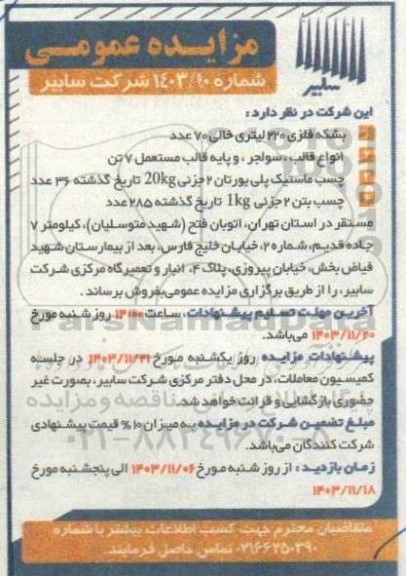 مزایده عمومی
شماره ۱۴۰۳/۱۰ شرکت سابیر
سابیر
این شرکت در نظر دارد :
بشکه فلزی ۲۲۰ لیتری خالی ۷۰ عدد
انواع قالب ، سولجر ، و پایه قالب مستعمل ۷ تن
چسب ماستیک پلی یورتان ۲ جزئی 20kg تاریخ گذشته ۳۶ عدد
چسب بتن ۲ جزئی 1kg تاریخ گذشته ۲۸۵ عدد
مستقر در استان تهران، اتوبان فتح (شهید متوسلیان)، کیلومتر ۷
جاده قدیم، شماره ۲، خیابان خلیج فارس، بعد از بیمارستان شهید
فیاض بخش، خیابان پیروزی، پلاک ۴، انبار و تعمیرگاه مرکزی شرکت
سابیر، را از طریق برگزاری مزایده عمومی بفروش برساند .
آخرین مهلت تسلیم پیشنهادات ، ساعت ۱۴:۰۰ روز شنبه مورخ
۱۴۰۳/۱۱/۲۰ می‌باشد.
پیشنهادات مزایده روز یکشنبه مورخ ۱۴۰۳/۱۱/۲۱ در جلسه
کمیسیون معاملات، در محل دفتر مرکزی شرکت سابیر، بصورت غیر
حضوری بازگشایی و قرائت خواهد شد.
مبلغ تضمین شرکت در مزایده به میزان ۱۰% قیمت پیشنهادی
شرکت کنندگان می‌باشد.
زمان بازدید : از روز شنبه مورخ ۱۴۰۳/۱۱/۰۶ الی پنجشنبه مورخ
۱۴۰۳/۱۱/۱۸
متقاضیان محترم جهت کسب اطلاعات بیشتر با شماره
۰۲۱۶۶۲۵۰۳۹۰ تماس حاصل فرمایند.
ParsNamad
۰۲۱-۸۸۳۴۹۶۷۰